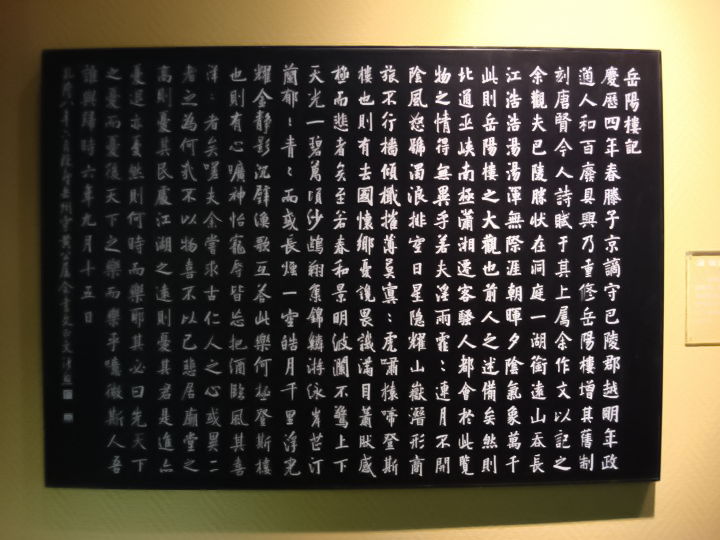 岳陽樓記
慶曆四年春滕子京謫守巴陵郡越明年政
通人和百廢具興乃重修岳陽樓增其舊制
刻唐賢今人詩賦于其上屬余作文以記之
余觀夫巴陵勝狀在洞庭一湖銜遠山吞長
江浩浩湯湯渾無際涯朝暉夕陰氣象萬千
此則岳陽樓之大觀也前人之述備矣然則
北通巫峽南極瀟湘遷客騷人都會於此覽
物之情得無異乎若夫淫雨霏:連月不開
陰風怒號濁浪排空日星隱耀山嶽潛形商
旅不行檣傾檝摧薄莫冥:虎嘯猿啼登斯
樓也則有去國懷鄉憂讒畏譏滿目蕭然感
極而悲者矣至若春和景明波瀾不驚上下
天光一碧萬頃沙鷗翔集錦鱗游泳岸芷汀
蘭郁:青:而或長煙一空皓月千里浮光
耀金靜影沉璧漁歌互荅此樂何極登斯樓
也則有心曠神怡寵辱皆忘把酒臨風其喜
洋:者矣嗟夫余嘗求古仁人之心或異二
者之為何哉不以物喜不以己悲居廟堂之
高則憂其民處江湖之遠則憂其君是進亦
憂退亦憂然則何時而樂耶其必曰先天下
之憂而憂後天下之樂而樂乎噫微斯人吾
誰與歸時六年九月十五日